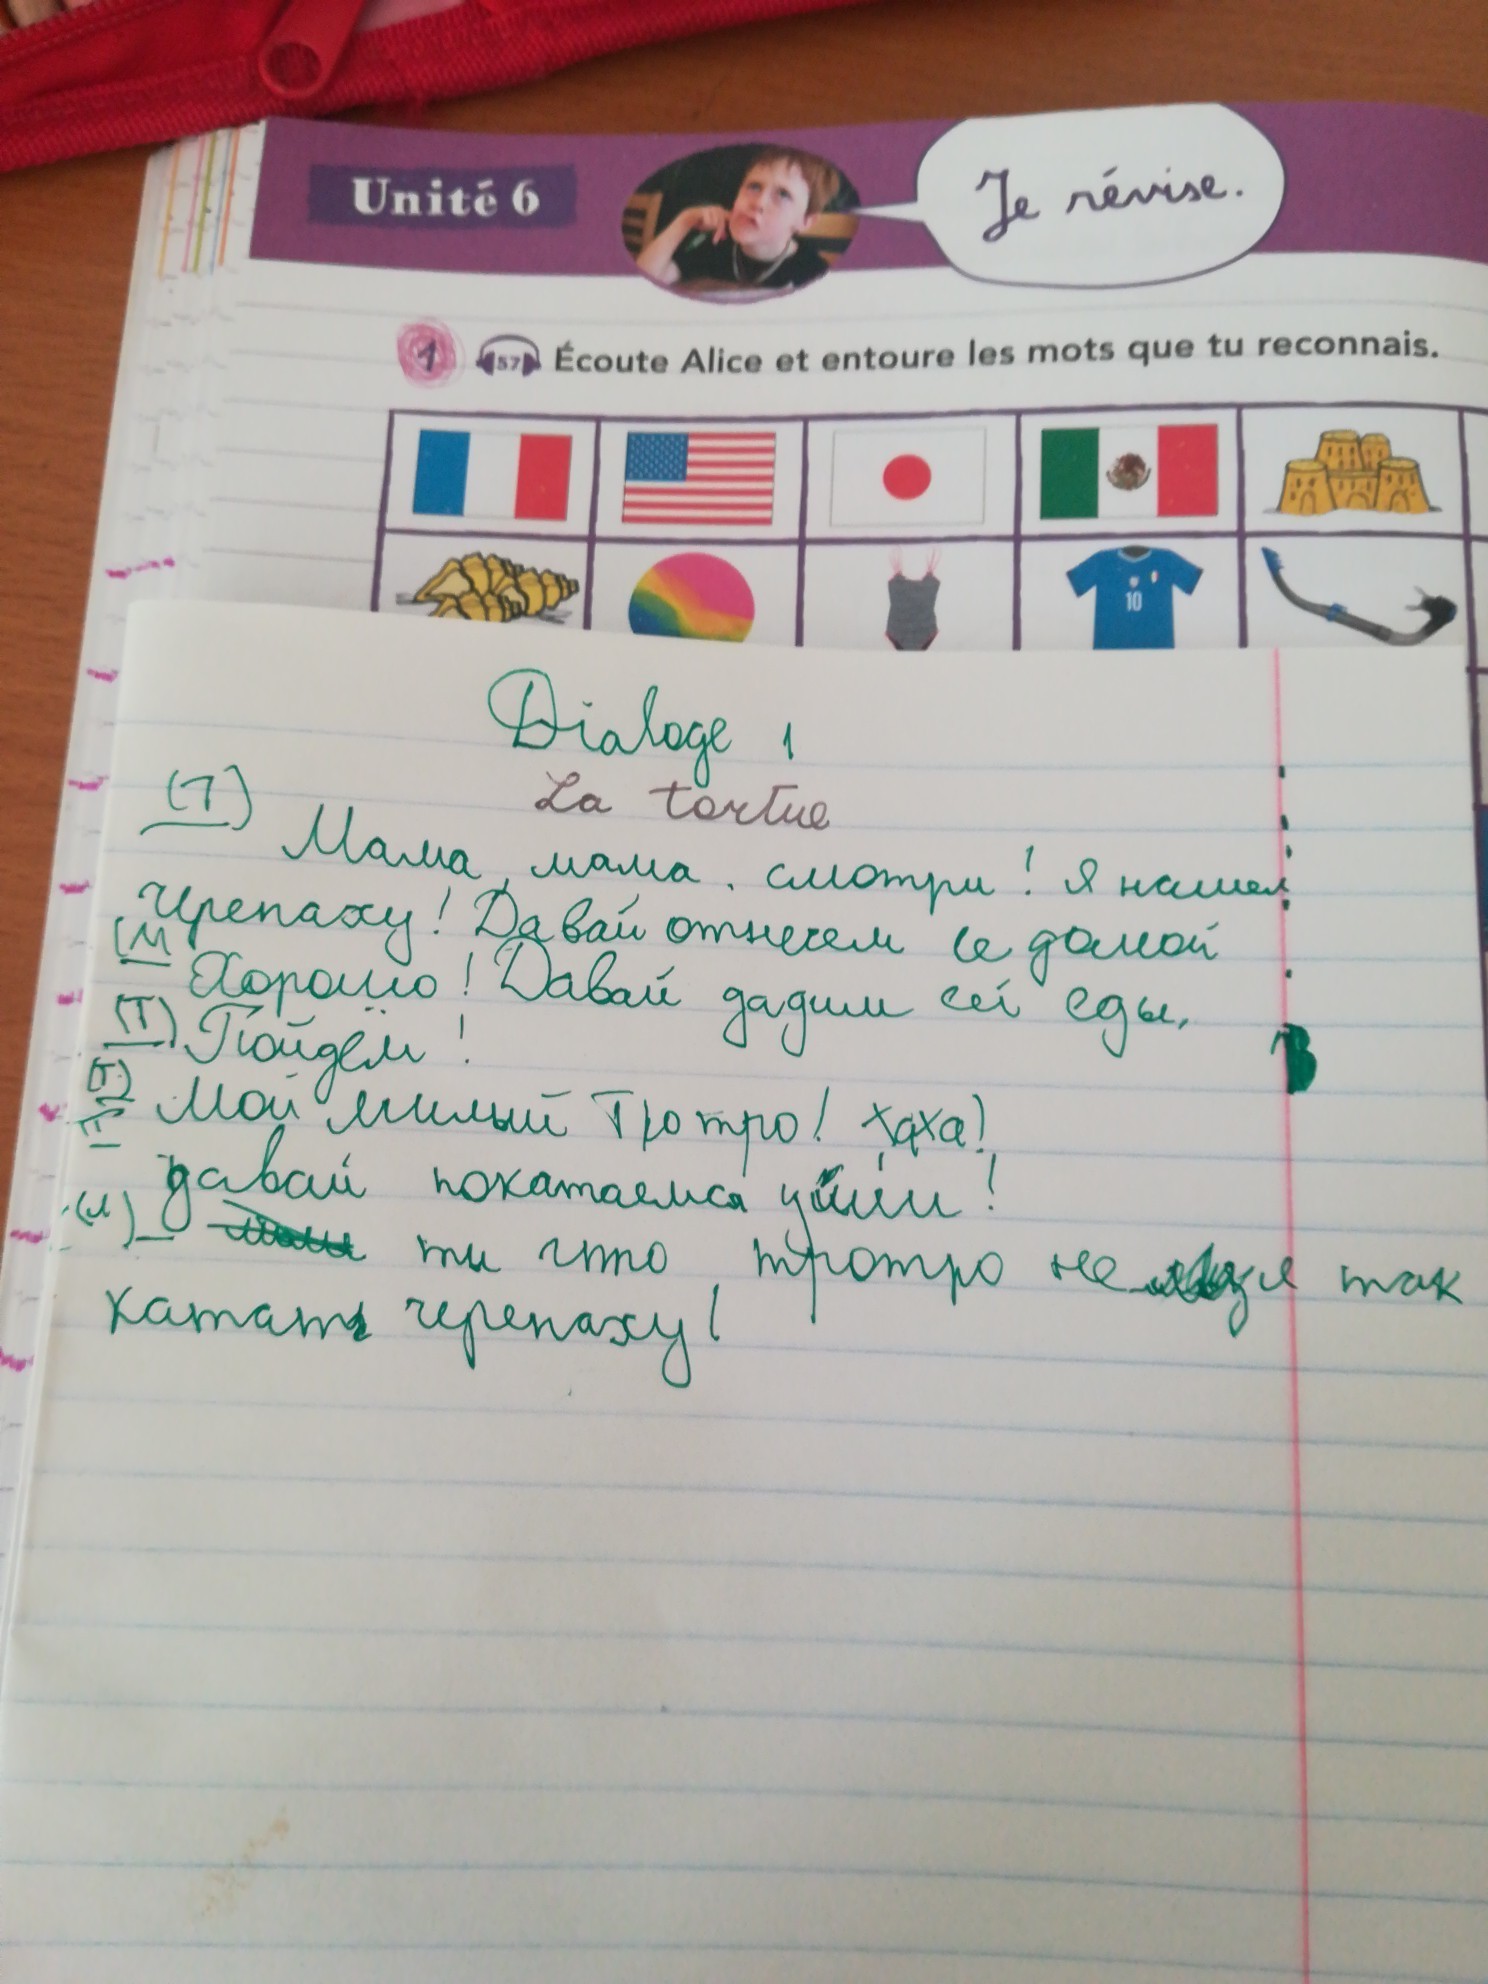 Unité 6
Je révise.
1 57 Écoute Alice et entoure les mots que tu reconnais.
10
Dialoge 1
La tortue
(Т)
Мама, мама, смотри! Я нашел
черепаху! Давай отнесем ее домой
(М
Хорошо! Давай дадим ей еды,
(Т) Пойдём!
(Т)
Мой милый Тротро! хаха!
давай покатаемся
(М) ти что тротро не так
катать черепаху!